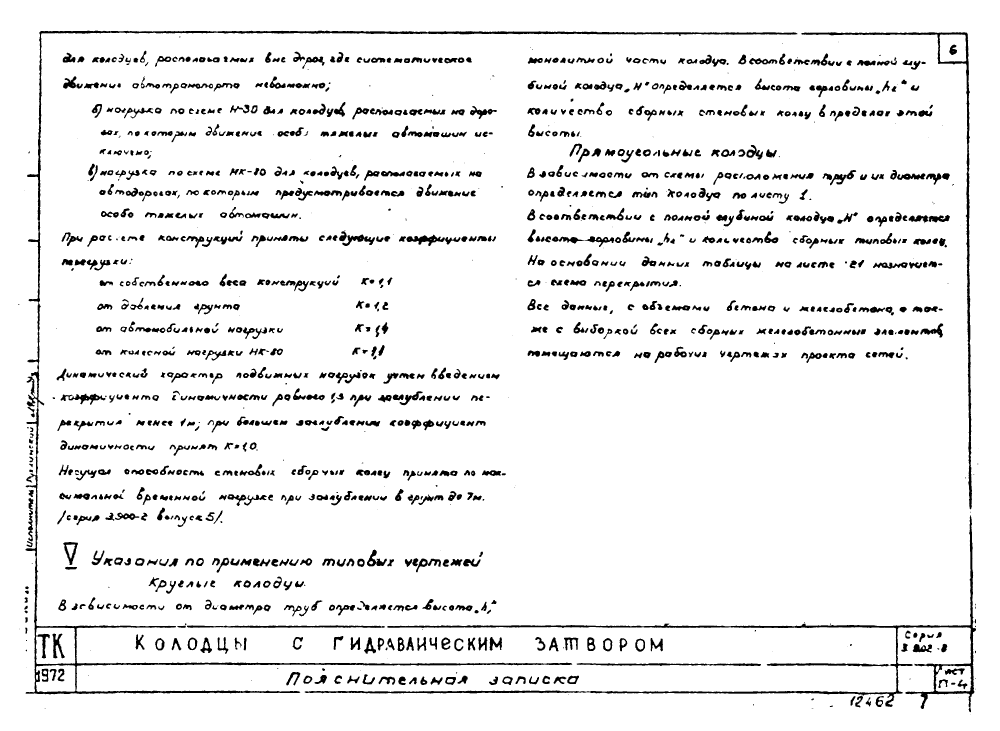 6
для колодцев, располагаемых вне дорог, где систематическое
движение автотранспорта невозможно;
б) нагрузка по схеме Н-30 для колодцев, располагаемых на доро-
гах, по которым движение особо тяжелых автомашин ис-
ключено;
в) нагрузка по схеме НК-80 для колодцев, располагаемых на
автодорогах, по которым предусматривается движение
особо тяжелых автомашин.
При расчете конструкций приняты следующие коэффициенты
перегрузки:
от собственного веса конструкций К=1,1
от давления грунта К=1,2
от автомобильной нагрузки К=1,4
от колесной нагрузки НК-80 К=1,1
Динамический характер подвижных нагрузок учтен введением
коэффициента динамичности равного 1,3 при заглублении пе-
рекрытия менее 1м; при большем заглублении коэффициент
динамичности принят К=1,0.
Несущая способность стеновых сборных колец принята по мак-
симальной временной нагрузке при заглублении в грунт до 7м.
/серия 3.900-2 выпуск 5/.
V Указания по применению типовых чертежей
Круглые колодцы.
В зависимости от диаметра труб определяется высота „h,"
монолитной части колодца. В соответствии с полной глу-
биной колодца „Н" определяется высота горловины „hг" и
количество сборных стеновых колец в пределах этой
высоты.
Прямоугольные колодцы.
В зависимости от схемы расположения труб и их диаметра
определяется тип колодца по листу 1.
В соответствии с полной глубиной колодца „Н" определяется
высота горловины „hг" и количество сборных типовых колец.
На основании данных таблицы на листе 21 назначает-
ся схема перекрытия.
Все данные, с объемами бетона и железобетона, а так-
же с выборкой всех сборных железобетонных элементов,
помещаются на рабочих чертежах проекта сетей.
Исполнитель
ТК
1972
Колодцы с гидравлическим затвором
Пояснительная записка
Серия
3.902-8
Лист
П-4
12462 7